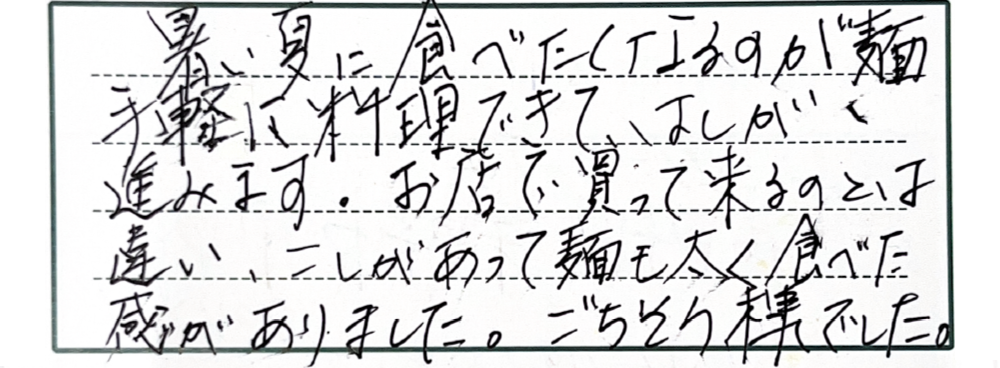 暑い夏に食べたくなるのが麺
手軽に料理できて、はしが
進みます。お店で買って来るのとは
違い、こしがあって麺も太く食べた
感がありました。ごちそう様でした。